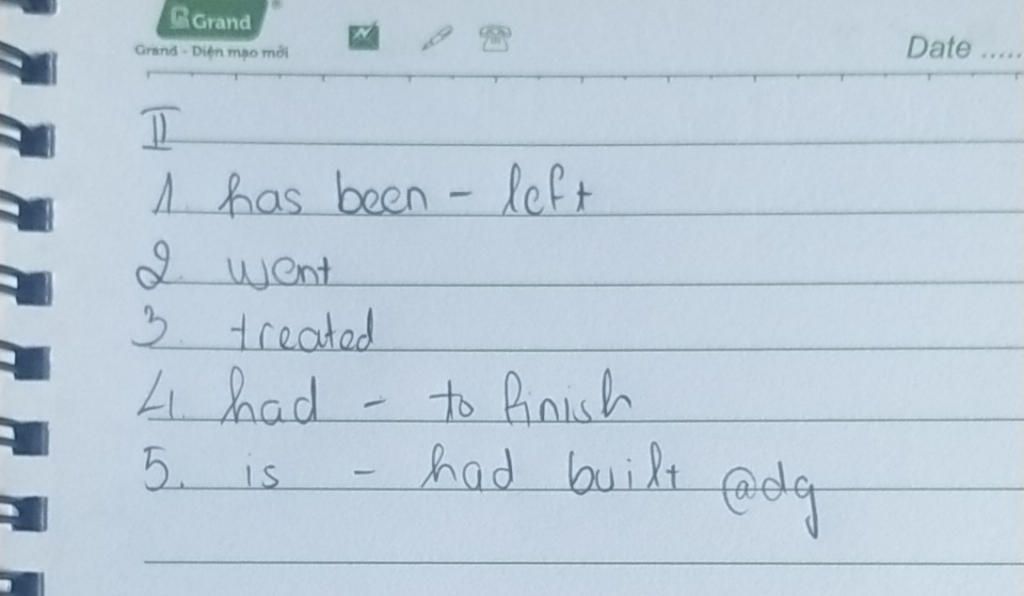 Grand
Grand - Diện mạo mới
Date .....
II
1. has been - left
2. went
3. treated
4. had - to finish
5. is - had built @dg